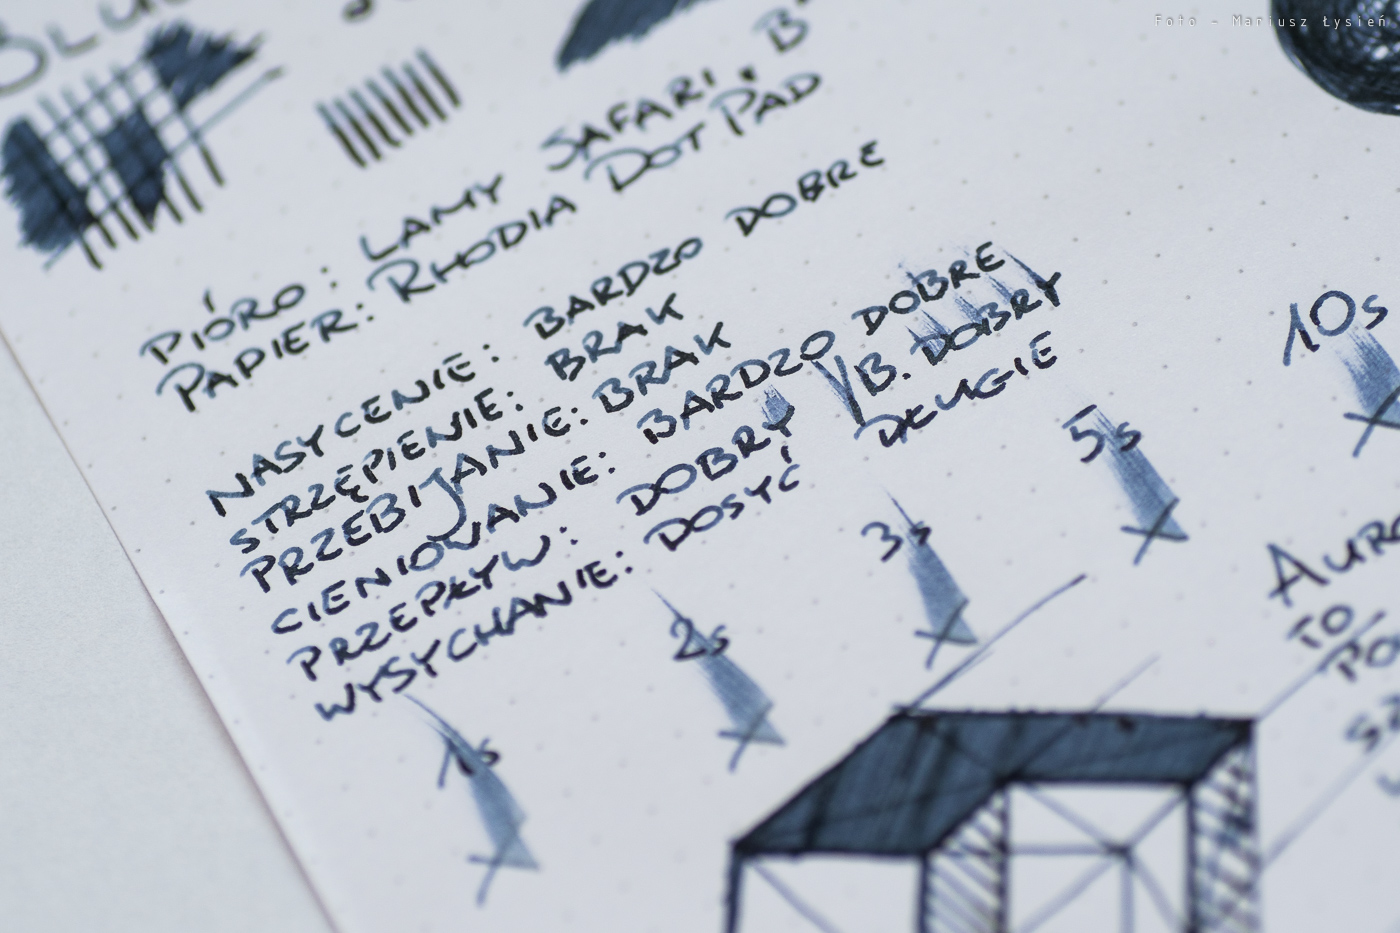 Foto - Mariusz Łysień
PIÓRO: LAMY SAFARI, B
PAPIER: RHODIA DOT PAD
NASYCENIE: BARDZO DOBRE
STRZĘPIENIE: BRAK
PRZEBIJANIE: BRAK
CIENIOWANIE: BARDZO DOBRE
PRZEPŁYW: DOBRY / B. DOBRY
WYSYCHANIE: DOSYĆ DŁUGIE
1s
2s
3s
5s
10s
TO